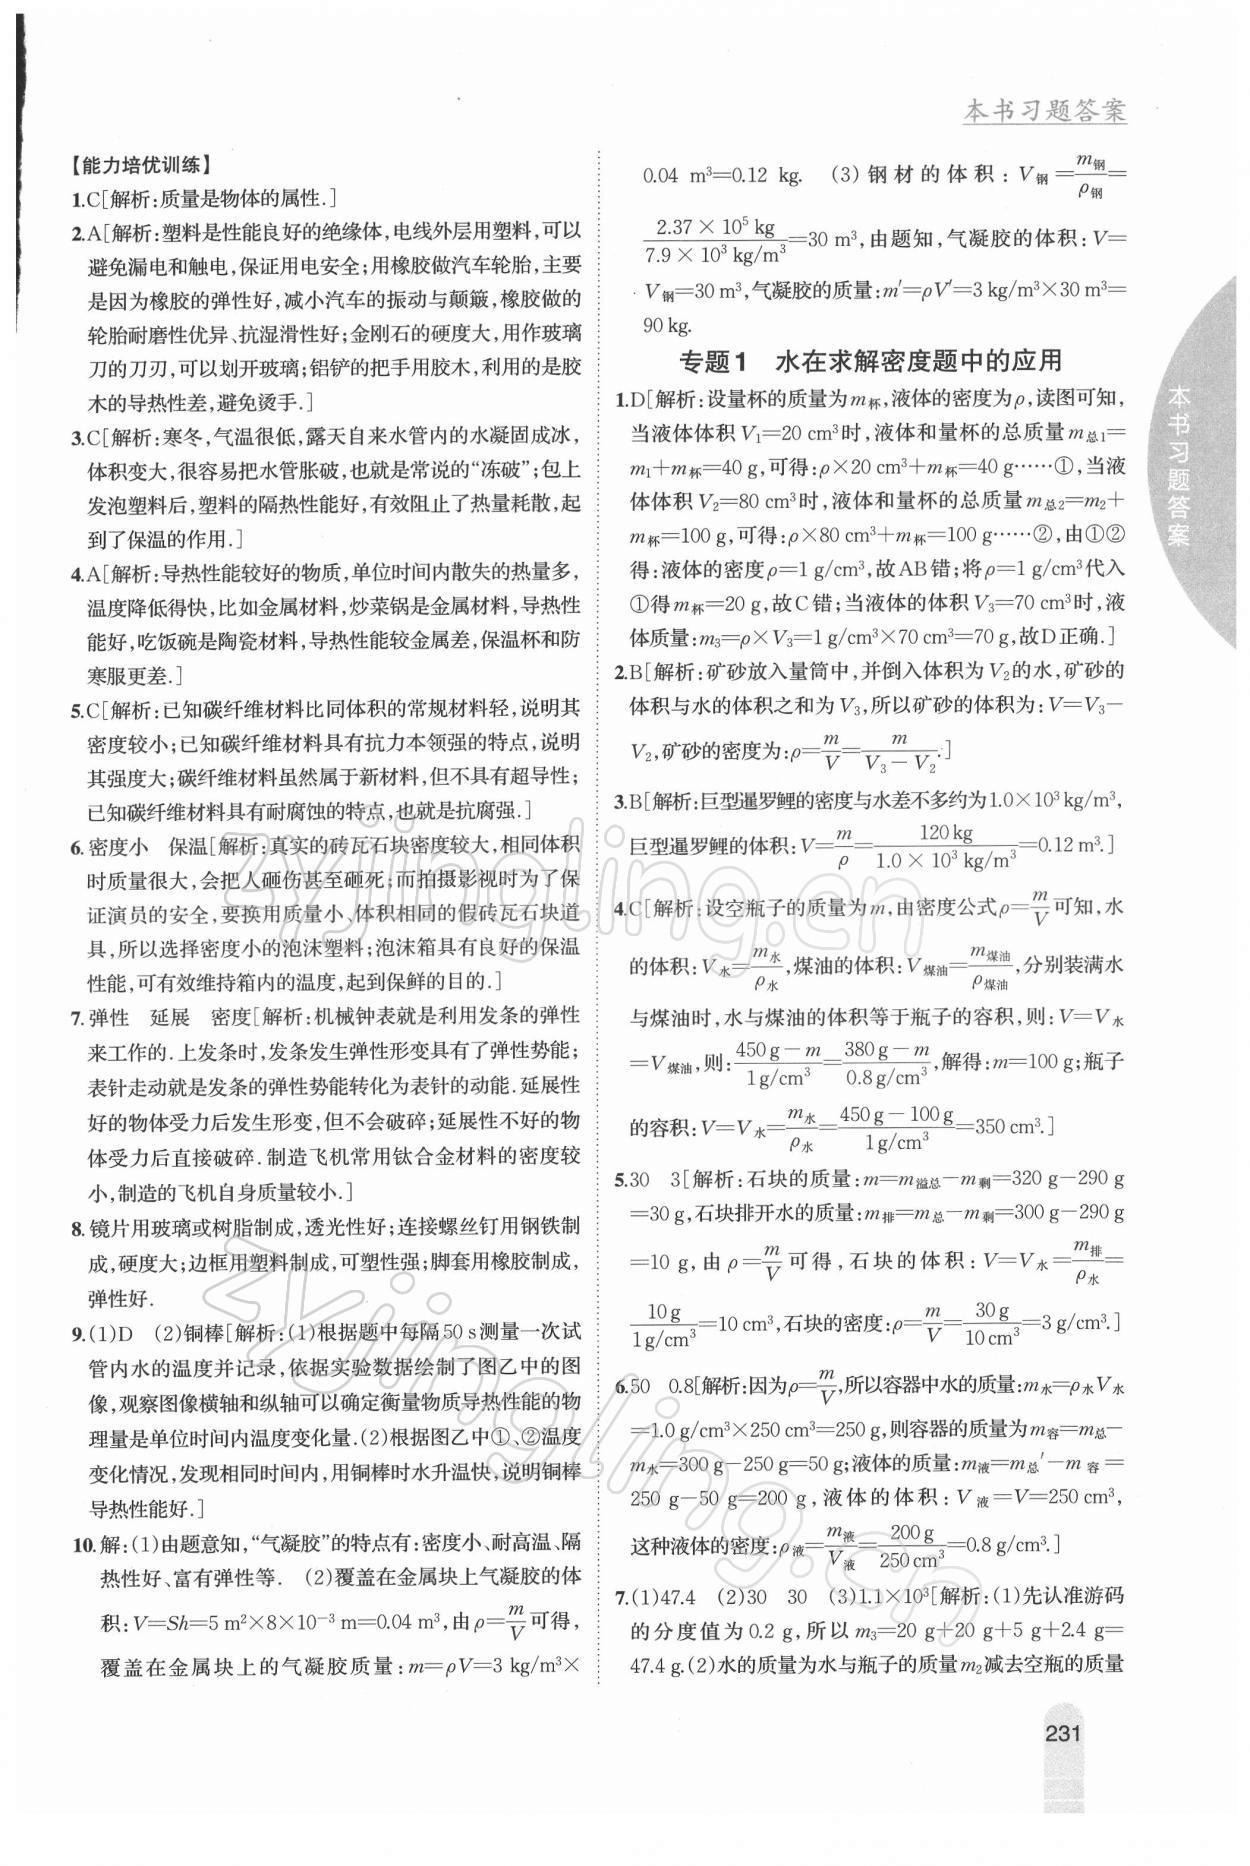 本书习题答案
【能力培优训练】
1.C[解析:质量是物体的属性.]
2.A[解析:塑料是性能良好的绝缘体,电线外层用塑料,可以
避免漏电和触电,保证用电安全;用橡胶做汽车轮胎,主要
是因为橡胶的弹性好,减小汽车的振动与颠簸,橡胶做的
轮胎耐磨性优异、抗湿滑性好;金刚石的硬度大,用作玻璃
刀的刀刃,可以划开玻璃;铝铲的把手用胶木,利用的是胶
木的导热性差,避免烫手.]
3.C[解析:寒冬,气温很低,露天自来水管内的水凝固成冰,
体积变大,很容易把水管胀破,也就是常说的“冻破”;包上
发泡塑料后,塑料的隔热性能好,有效阻止了热量耗散,起
到了保温的作用.]
4.A[解析:导热性能较好的物质,单位时间内散失的热量多,
温度降低得快,比如金属材料,炒菜锅是金属材料,导热性
能好,吃饭碗是陶瓷材料,导热性能较金属差,保温杯和防
寒服更差.]
5.C[解析:已知碳纤维材料比同体积的常规材料轻,说明其
密度较小;已知碳纤维材料具有抗力本领强的特点,说明
其强度大;碳纤维材料虽然属于新材料,但不具有超导性;
已知碳纤维材料具有耐腐蚀的特点,也就是抗腐强.]
6.密度小 保温[解析:真实的砖瓦石块密度较大,相同体积
时质量很大,会把人砸伤甚至砸死;而拍摄影视时为了保
证演员的安全,要换用质量小、体积相同的假砖瓦石块道
具,所以选择密度小的泡沫塑料;泡沫箱具有良好的保温
性能,可有效维持箱内的温度,起到保鲜的目的.]
7.弹性 延展 密度[解析:机械钟表就是利用发条的弹性
来工作的.上发条时,发条发生弹性形变具有了弹性势能;
表针走动就是发条的弹性势能转化为表针的动能.延展性
好的物体受力后发生形变,但不会破碎;延展性不好的物
体受力后直接破碎.制造飞机常用钛合金材料的密度较
小,制造的飞机自身质量较小.]
8.镜片用玻璃或树脂制成,透光性好;连接螺丝钉用钢铁制
成,硬度大;边框用塑料制成,可塑性强;脚套用橡胶制成,
弹性好.
9.(1)D (2)铜棒[解析:(1)根据题中每隔50 s测量一次试
管内水的温度并记录,依据实验数据绘制了图乙中的图
像,观察图像横轴和纵轴可以确定衡量物质导热性能的物
理量是单位时间内温度变化量.(2)根据图乙中①、②温度
变化情况,发现相同时间内,用铜棒时水升温快,说明铜棒
导热性能好.]
10.解:(1)由题意知,“气凝胶”的特点有:密度小、耐高温、隔
热性好、富有弹性等. (2)覆盖在金属块上气凝胶的体
积:V=Sh=5 m²×8×10⁻³ m=0.04 m³,由ρ=m/V可得,
覆盖在金属块上的气凝胶质量:m=ρV=3 kg/m³×
0.04 m³=0.12 kg. (3)钢材的体积:V钢=m钢/ρ钢=
2.37×10⁵ kg/7.9×10³ kg/m³=30 m³,由题知,气凝胶的体积:V=
V钢=30 m³,气凝胶的质量:m′=ρV′=3 kg/m³×30 m³=
90 kg.
专题1 水在求解密度题中的应用
1.D[解析:设量杯的质量为m杯,液体的密度为ρ,读图可知,
当液体体积V₁=20 cm³时,液体和量杯的总质量m总1=
m₁+m杯=40 g,可得:ρ×20 cm³+m杯=40 g……①,当液
体体积V₂=80 cm³时,液体和量杯的总质量m总2=m₂+
m杯=100 g,可得:ρ×80 cm³+m杯=100 g……②,由①②
得:液体的密度ρ=1 g/cm³,故AB错;将ρ=1 g/cm³代入
①得m杯=20 g,故C错;当液体的体积V₃=70 cm³时,液
体质量:m₃=ρ×V₃=1 g/cm³×70 cm³=70 g,故D正确.]
2.B[解析:矿砂放入量筒中,并倒入体积为V₂的水,矿砂的
体积与水的体积之和为V₃,所以矿砂的体积为:V=V₃-
V₂,矿砂的密度为:ρ=m/V=m/(V₃-V₂).]
3.B[解析:巨型暹罗鲤的密度与水差不多约为1.0×10³ kg/m³,
巨型暹罗鲤的体积:V=m/ρ=120 kg/1.0×10³ kg/m³=0.12 m³.]
4.C[解析:设空瓶子的质量为m,由密度公式ρ=m/V可知,水
的体积:V水=m水/ρ水,煤油的体积:V煤油=m煤油/ρ煤油,分别装满水
与煤油时,水与煤油的体积等于瓶子的容积,则:V=V水
=V煤油,则:(450 g-m)/1 g/cm³=(380 g-m)/0.8 g/cm³,解得:m=100 g;瓶子
的容积:V=V水=m水/ρ水=(450 g-100 g)/1 g/cm³=350 cm³.]
5.30 3[解析:石块的质量:m=m溢总-m剩=320 g-290 g
=30 g,石块排开水的质量:m排=m总-m剩=300 g-290 g
=10 g,由ρ=m/V可得,石块的体积:V=V水=m排/ρ水=
10 g/1 g/cm³=10 cm³,石块的密度:ρ=m/V=30 g/10 cm³=3 g/cm³.]
6.50 0.8[解析:因为ρ=m/V,所以容器中水的质量:m水=ρ水V水
=1.0 g/cm³×250 cm³=250 g,则容器的质量为m容=m总-
m水=300 g-250 g=50 g;液体的质量:m液=m总′-m容=
250 g-50 g=200 g,液体的体积:V液=V=250 cm³,
这种液体的密度:ρ液=m液/V液=200 g/250 cm³=0.8 g/cm³.]
7.(1)47.4 (2)30 30 (3)1.1×10³[解析:(1)先认准游码
的分度值为0.2 g,所以m₃=20 g+20 g+5 g+2.4 g=
47.4 g.(2)水的质量为水与瓶子的质量m₂减去空瓶的质量
本书习题答案
231
zyjingling.cn
zyjingling.cn